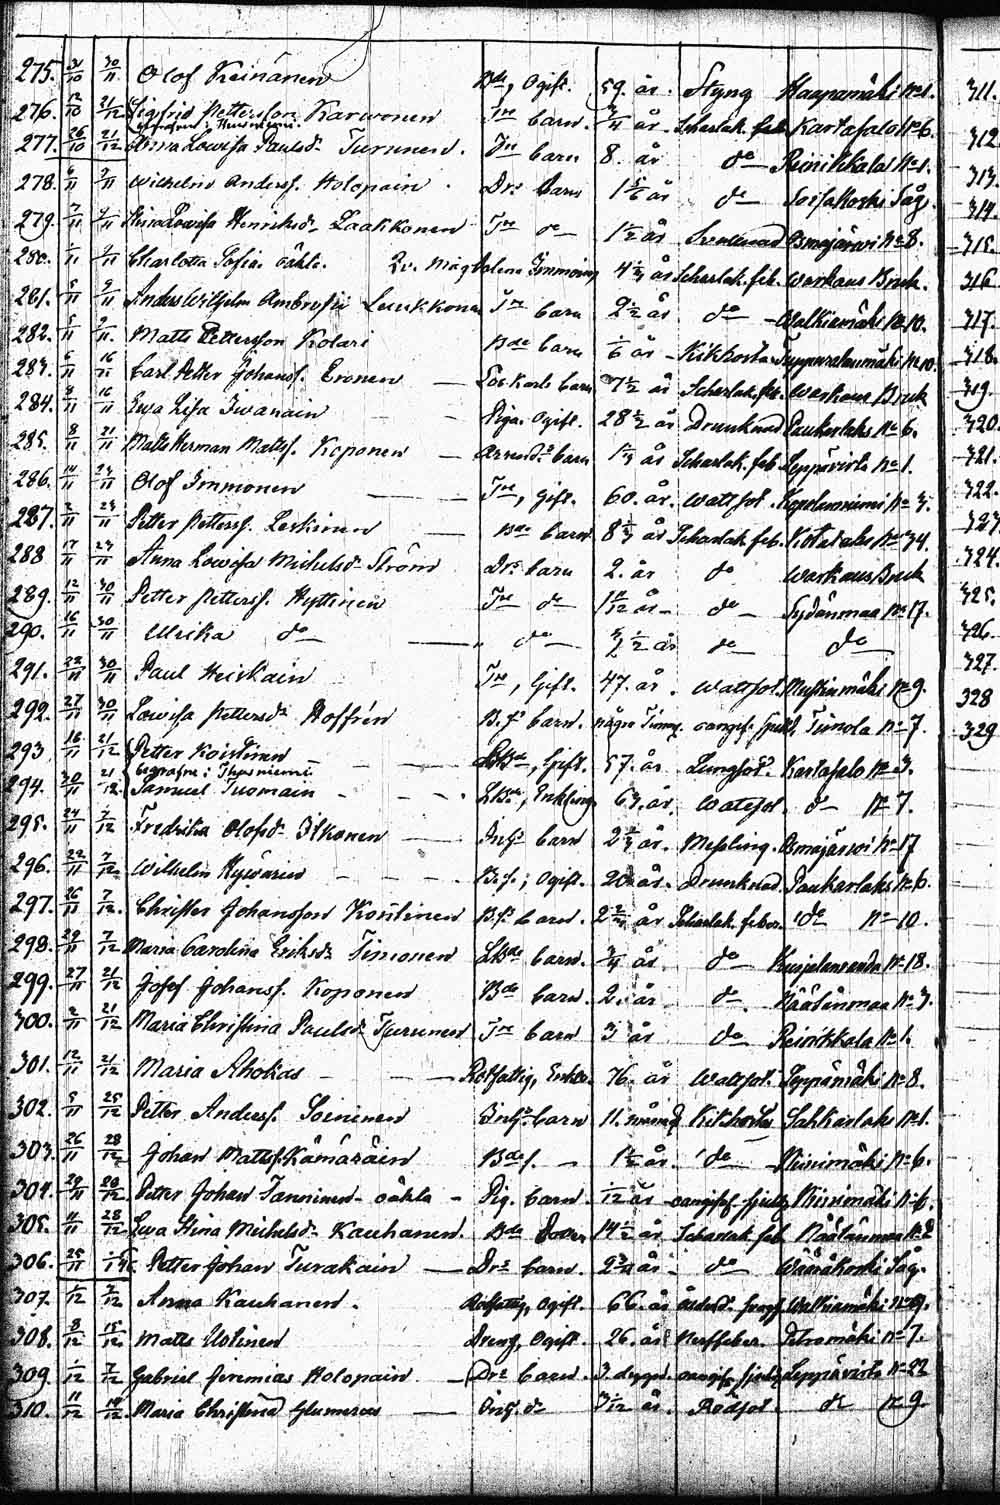 275. 31/10 30/11 Olof Keinänen Bde, Ogift. 59. år. Styng Haapamäki No 1.
276. 12/10 21/12 Sigfrid Pettersson Karvonen Tn barn. 3/4 år. Scharlak. feb. Kartasalo No 6.
begrafne i
277. 26/10 21/12 Anna Lowisa Paulsdr Turunen. Tn barn 8. år do Reinikkala No 1.
278. 7/11 Wilhelm Andersf. Holopain Drs barn 1 5/6 år do Sorsakoski Såg.
279. 7/11 9/11 Stina Lowisa Henriksdr Laakkonen Tn do 1 1/2 år Osmajärwi No 8.
280. 1/11 9/11 Charlotta Sofia. oäkta. Qv. Magdalena Immoin 4 1/4 år Scharlak. feb. Warkaus Bruk.
281. 5/11 9/11 Anders Wilhelm Ambrosii Leinkkonen Tn barn 2 1/2 år do Walkiamäki No 10.
282. 5/11 9/11. Matts Pettersson Kolari Bde barn 1/6 år Kikhosta No 10.
283. 6/11 16/11 Carl Petter Johansf. Eronen Sockark barn 7 1/2 år Scharlak. feb. Warkaus Bruk
284. 8/11 16/11 Ewa Lisa Iwanain Piga. Ogift. 28 1/2 år Drunknad Paukarlaks No 6.
285. 8/11 21/11 Matts Herman Mattsf. Koponen Arrendrs barn 1 1/4 år Scharlak. feb. Leppävirta No 1.
286. 14/11 23/11 Olof Immonen Tn, gift. 60. år. Wattsot. Kopolanniemi No 3.
287. 2/11 23/11 Petter Pettersf. Leskinen Bde barn 8 1/3 år Scharlak. feb. Kotalaks No 34.
288 17/11 23/11 Anna Lowisa Michelsdr Ström Drs barn 2. år do Warkaus Bruk
289. 12/11 30/11 Petter Pettersf. Hyttinen Tn do 1 5/12 år do Sydänmaa No 17.
290. 16/11 30/11 Ulrika do do 1/2 år do do
291. 22/11 30/11 Paul Heiskain Tn, Gift. 47. år. Wattsot. Mustinmäki No 9.
292. 27/11 30/11 Lowisa Pettersdr Hoffrén B.fs barn. några Timmar oangif. sjukd. Timola No 7.
293 16/11 21/12 Petter Koistinen LBde, Gift. 57. år. Lungsot. Kartasalo No 3.
begrafne i Thusniemi.
294. 30/11 21/12 Samuel Tuomain LBde, Enkling 63. år. Wattsot. do No 7.
295. 24/11 7/12 Fredrika Olofsdr Ilkonen Inhs barn 2 3/4 år. Messling. Osmajärwi No 17
296. 22/11 7/12 Wilhelm Hywärin B.s., Ogift. 20. år. Drunknad Paukarlaks No 6.
297. 26/11 7/12. Christer Johansson Kontinen B.fs barn. 2 2/3 år Scharlak. feber. do No 10.
298. 29/11 7/12 Maria Carolina Eriksdr Timonen LBde barn. 3/4 år. do Kurjalanranda No 18.
299. 27/11 21/12 Josef Johansf. Koponen Bde barn 2. år do Näätänmaa No 3.
300. 2/11 21/12 Maria Christina Paulsdr Turunen Tn barn 3 år do Reinikkala No 1.
301. 12/11 21/12 Maria Ahokas Rotfattig, Enka. 76. år Wattsot. Leppämäki No 8.
302. 5/11 25/12 Petter Andersf. Soininen Inhs barn 11. månad Kikhosta Sahkarlaks No 1.
303. 26/11 28/12 Johan Mattsf. Kämäräin Bdes. 1 1/2 år. do Niinimäki No 6.
304. 29/11 20/12 Petter Johan Tanninen oäkta Pig. barn. 1/12 år oangifs. sjukd. Niinimäki No 6.
305. 11/11 28/12 Ewa Stina Michelsdr Kauhanen. Bde Dotter 14 1/2 år Scharlak. feb. Näätänmaa No 2
306. 25/11 Petter Johan Turakain Drs barn. 2 3/4 år do Wääräkoski Såg.
307. 1/12 7/12 Anna Kauhanen. Rotfattig, Ogift. 66. år Walkiamäki No 9.
308. 8/12 15/12 Matts Ustinen Dreng, Ogift. 26. år Nerffeber. Petromäki No 7.
309. 1/12 7/12 Gabriel Jeremias Holopain Drs barn. 3. dygn. oangifs. sjukd. Leppävirta No 22
310. 11/12 14/12. Maria Christina Glumerus Inhs do 3 1/12 år. Rödsot. do No 9
311.
312
313.
314.
315.
316
317.
318.
319.
320.
321.
322.
323
324.
325.
326.
327.
328
329